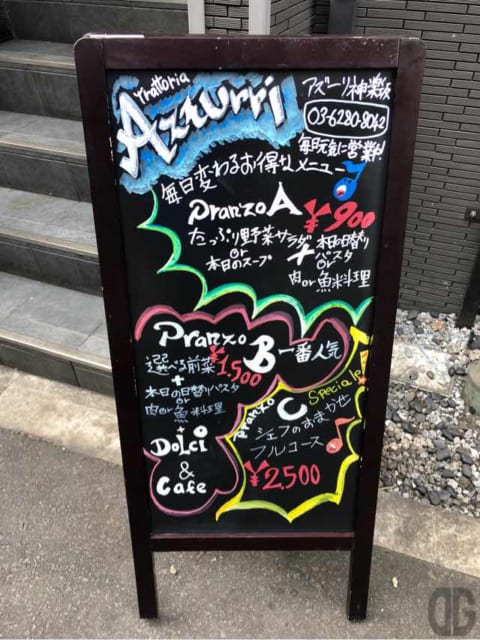 Trattoria
Azzurri
アズーリ神楽坂
03-6280-8042
毎日元気に営業!
毎日変わるお得なメニュー
Pranzo A ¥900
たっぷり野菜サラダ
or
本日のスープ
+
本日の日替り
パスタ
or
肉or魚料理
Pranzo B 一番人気
¥1,500
選べる前菜
+
本日の日替りパスタ
or
肉or魚料理
+
Dolci
&
Cafe
Pranzo C Speciale
シェフのおまかせ
フルコース
¥2,500
DG